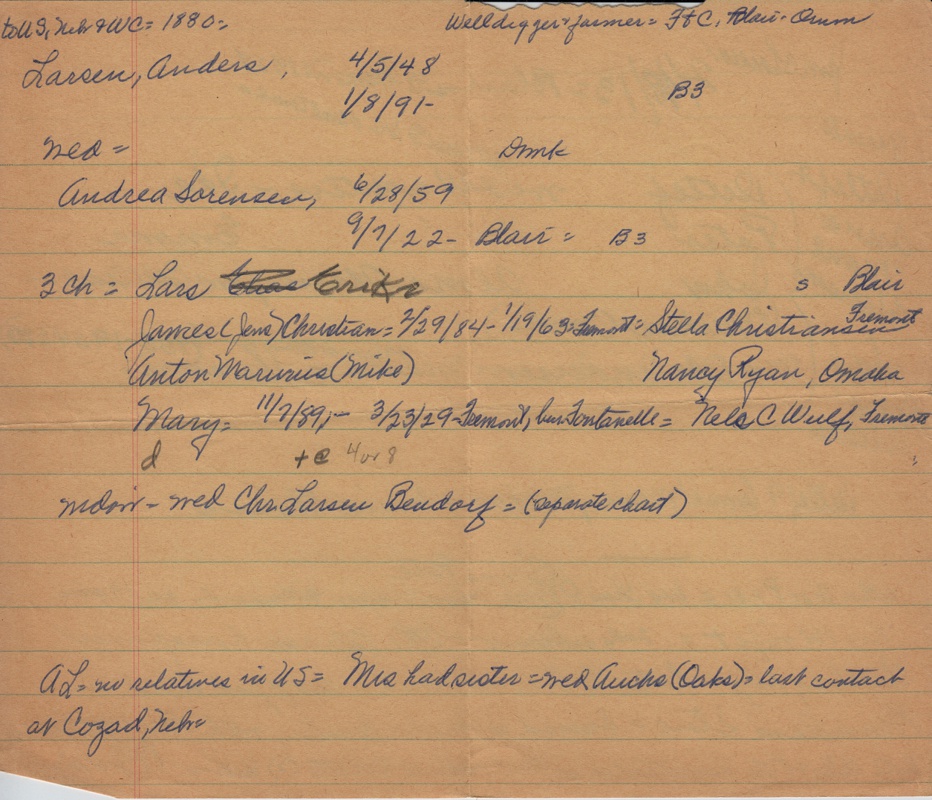 to US, Nebr & WC = 1880 = Welldigger & farmer = Ft C, Blair - Orum
Larsen, Anders, 4/5/48
1/8/91- B3
wed = Dmk
Andrea Sorensen, 6/28/59
9/7/22- Blair = B3
3 ch = Lars Erikr s Blair
James (Jens) Christian = 2/29/84 - 1/19/63 = Fremont = Stella Christiansen Fremont
Anton Marinus (Mike) Nancy Ryan, Omaha
Mary = 11/7/89,- 3/23/29 - Fremont, bur Fontanelle = Nels C Wulf, Fremont
d + @ 4 or 8
widow - wed Chr. Larsen Bendorf = (separate chart)
AL = no relatives in US = Mrs had sister = wed Auchs (Oaks) = last contact
at Cozad, Nebr